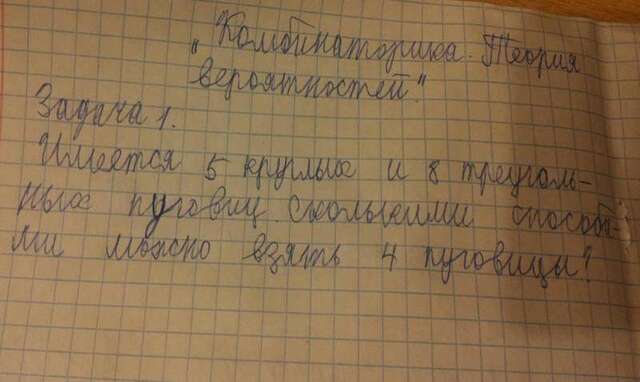 „Комбинаторика. Теория
вероятностей".
Задача 1.
Имеется 5 круглых и 8 треуголь-
ных пуговиц. Сколькими способа-
ми можно взять 4 пуговицы?